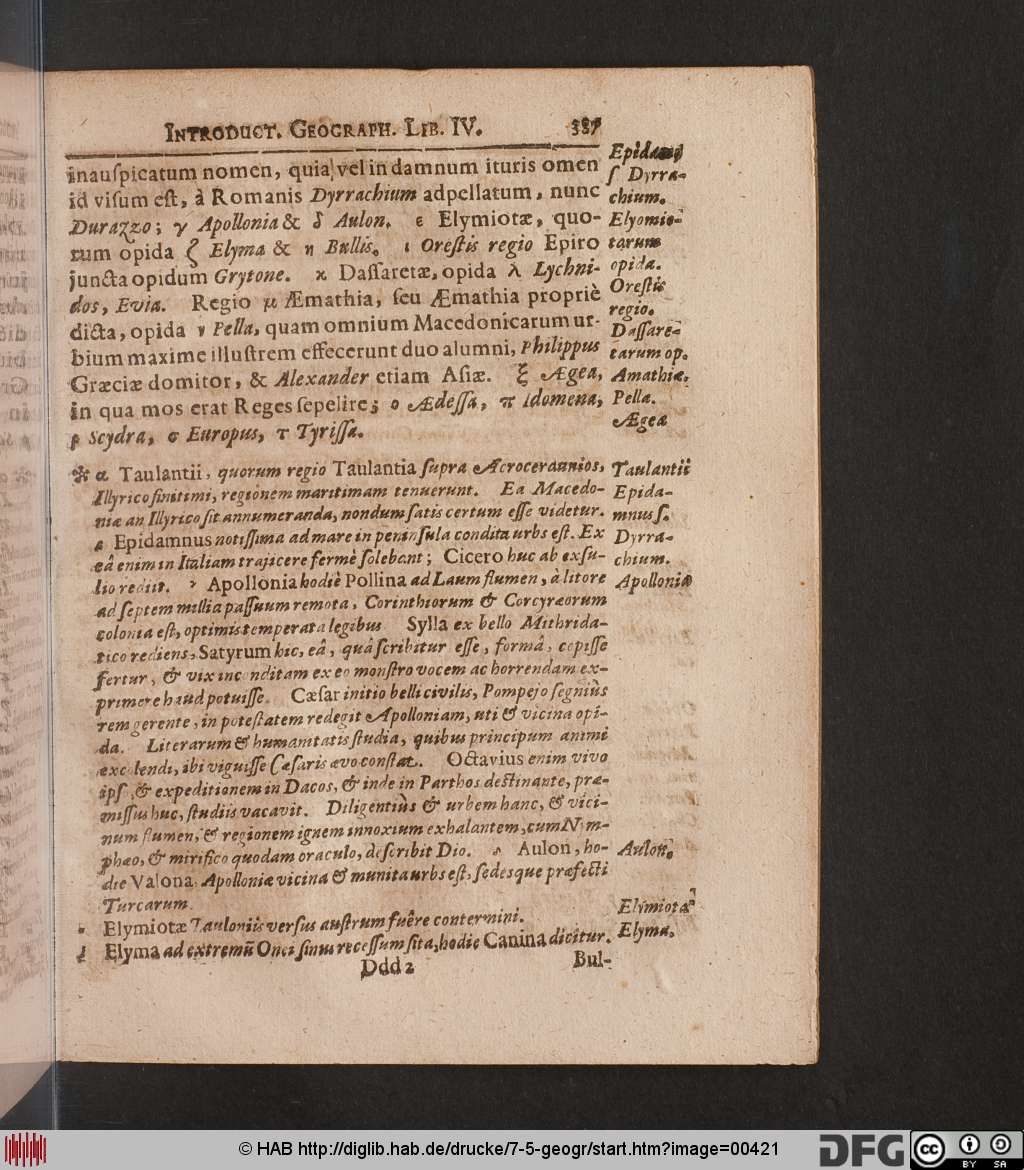 INTRODUCT. GEOGRAPH. LIB. IV. 387
inauſpicatum nomen, quia vel in damnum ituris omen
id viſum eſt, à Romanis Dyrrachium adpellatum, nunc
Durazzo; γ Apollonia & δ Aulon. ε Elymiotæ, quo-
rum opida ζ Elyma & η Bullis. ι Oreſtis regio Epiro
juncta opidum Grytone. ϰ Daſſaretæ, opida λ Lychni-
dos, Evia. Regio μ Æmathia, ſeu Æmathia propriè
dicta, opida ν Pella, quam omnium Macedonicarum ur-
bium maxime illuſtrem effecerunt duo alumni, Philippus
Græciæ domitor, & Alexander etiam Aſiæ. ξ Ægea,
in qua mos erat Reges ſepelire; ο Ædeſſa, π Idomena,
ρ Scydra, σ Europus, τ Tyriſſa.
Epidamnus
ſ Dyrra-
chium.
Elyomio-
tarum
opida.
Oreſtis
regio.
Daſſare-
tarum op.
Amathiæ.
Pella.
Ægea
* α Taulantii, quorum regio Taulantia ſupra Acroceraunios,
Illyrico finitimi, regionem maritimam tenuerunt. Ea Macedo-
niæ an Illyrico ſit annumeranda, nondum ſatis certum eſſe videtur.
β Epidamnus notiſſima ad mare in peninſula condita urbs eſt. Ex
eâ enim in Italiam trajicere fermè ſolebant; Cicero huc ab exſu-
lio rediit. γ Apollonia hodiè Pollina ad Laum flumen, à litore
ad ſeptem millia paſſuum remota, Corinthiorum & Corcyræorum
colonia eſt, optimis temperata legibus Sylla ex bello Mithrida-
tico rediens, Satyrum hic, eâ, quâ ſcribitur eſſe, formâ, cepiſſe
fertur, & vix inconditam ex eo monſtro vocem ac horrendam ex-
primere haud potuiſſe. Cæſar initio belli civilis, Pompejo ſegniùs
rem gerente, in poteſtatem redegit Apolloniam, uti & vicina opi-
da. Literarum & humanitatis ſtudia, quibus principum animi
excolendi, ibi viguiſſe Cæſaris ævo conſtat. Octavius enim vivo
ipſo, & expeditionem in Dacos, & inde in Parthos deſtinante, præ-
miſſus huc, ſtudiis vacavit. Diligentiùs & urbem hanc, & vici-
num flumen, & regionem ignem innoxium exhalantem, cum Nym-
phæo, & mirifico quodam oraculo, deſcribit Dio. δ Aulon, ho-
die Valona, Apolloniæ vicina & munita urbs eſt, ſedesque præfecti
Turcarum.
ε Elymiotæ Tauloniis verſus auſtrum fuêre contermini.
ζ Elyma ad extremũ Onci ſinus receſſum ſita, hodie Canina dicitur.
Taulantii
Epida-
mnus ſ.
Dyrra-
chium.
Apollonia
Aulon.
Elymiotæ
Elyma,
Ddd 2 Bul-
© HAB http://diglib.hab.de/drucke/7-5-geogr/start.htm?image=00421
DFG
cc
BY SA